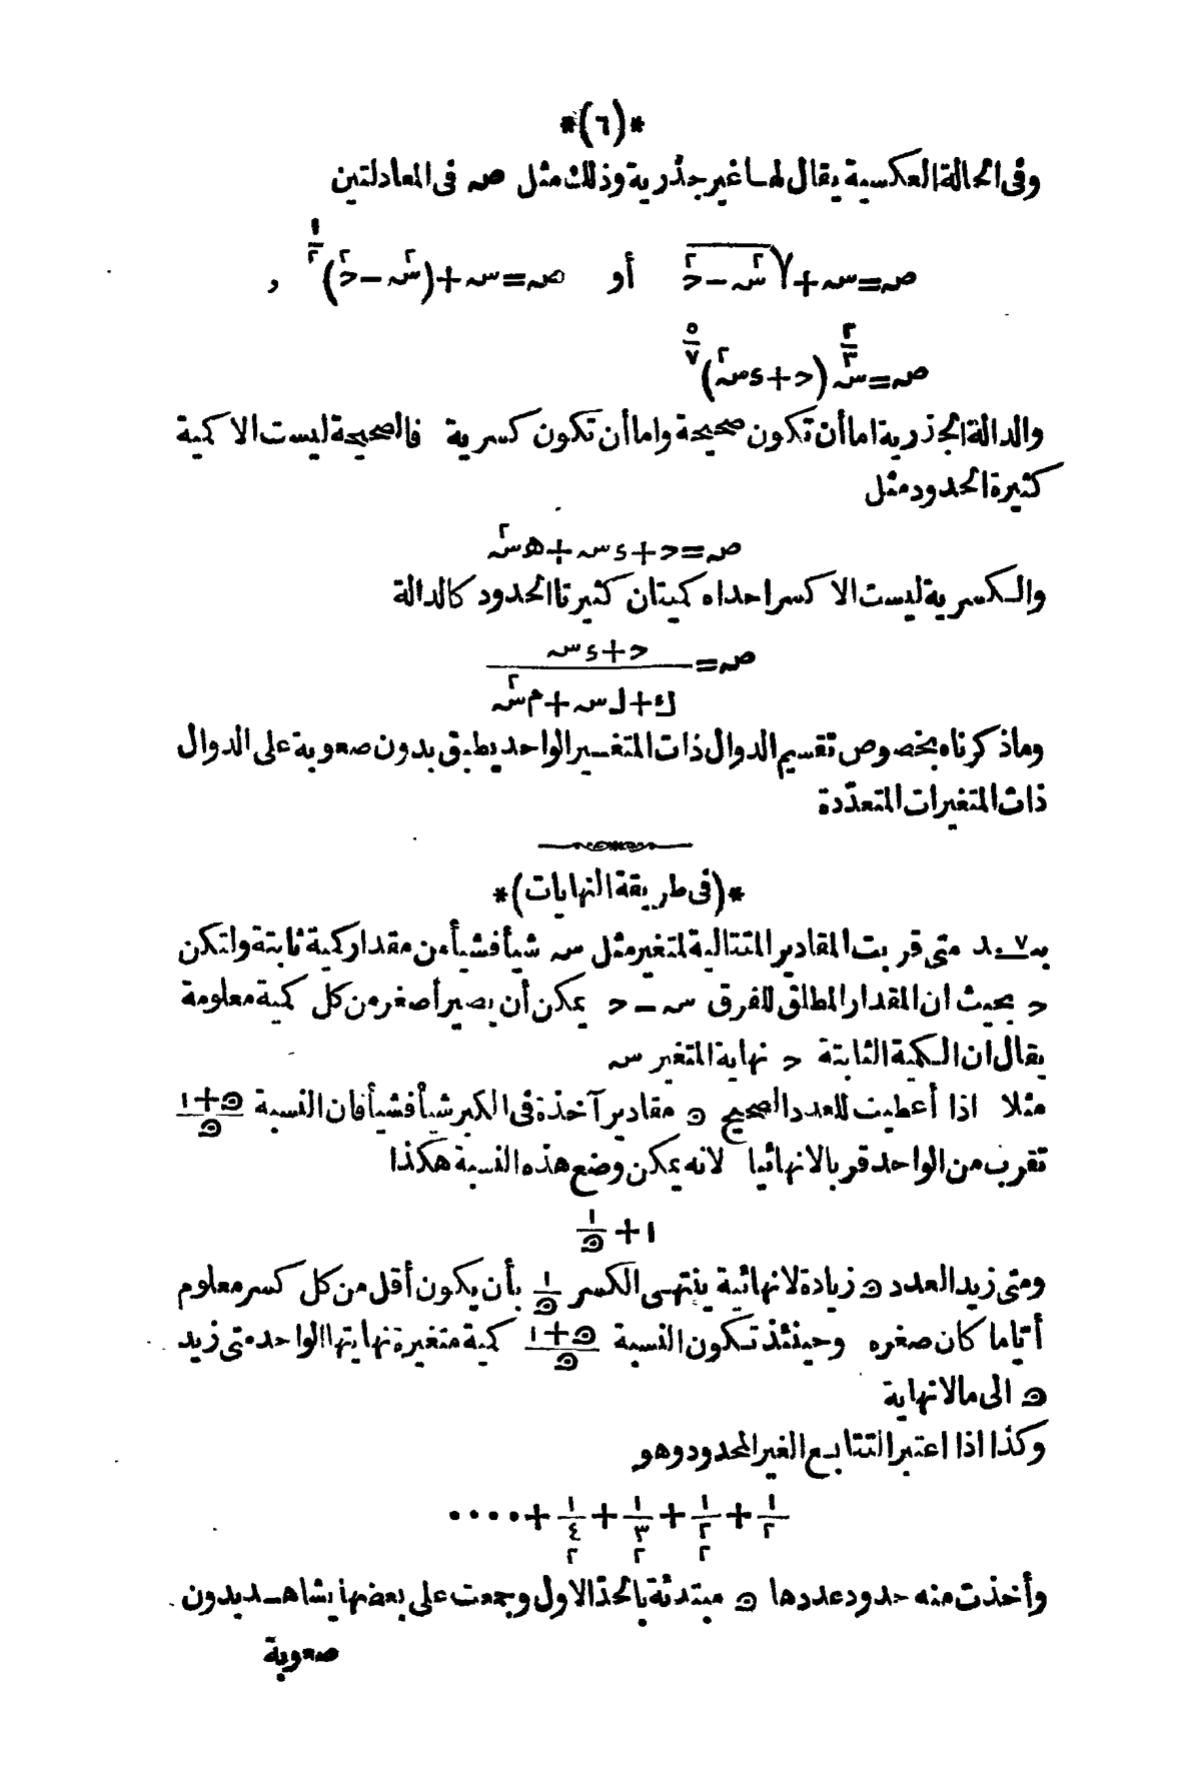 *(٦)*
وفى الحالة العكسية يقال لها غير جذرية وذلك مثل صـ فى المعادلتين
صـ = سـ + √(سـ٢ − حـ٢) أو صـ = سـ + (سـ٢ − حـ٢)^(١/٢) ,
صـ = سـ^(٢/٣) (حـ + ء سـ٢)^(٥/٧)
والدالة الجذرية اما أن تكون صحيحة واما أن تكون كسرية فالصحيحة ليست الا كمية
كثيرة الحدود مثل
صـ = حـ + ء سـ + هـ سـ٢
والكسرية ليست الا كسرا حداه كميتان كثيرتا الحدود كالدالة
صـ = (حـ + ء سـ) / (ك + ل سـ + م سـ٢)
وماذكرناه بخصوص تقسيم الدوال ذات المتغير الواحد يطبق بدون صعوبة على الدوال
ذات المتغيرات المتعدّدة
*(فى طريقة النهايات)*
بند ٧ متى قربت المقادير المتتالية لمتغير مثل سـ شيأ فشيأ من مقدار كمية ثابتة ولتكن
حـ بحيث ان المقدار المطلق للفرق سـ − حـ يمكن أن يصير أصغر من كل كمية معلومة
يقال ان الكمية الثابتة حـ نهاية المتغير سـ
مثلا اذا أعطيت للعدد الصحيح ﻫ مقادير آخذة فى الكبر شيأ فشيأ فان النسبة (ﻫ+١)/ﻫ
تقرب من الواحد قربا لانهائيا لانه يمكن وضع هذه النسبة هكذا
١ + ١/ﻫ
ومتى زيد العدد ﻫ زيادة لانهائية ينتهى الكسر ١/ﻫ بأن يكون أقل من كل كسر معلوم
أيّا ما كان صغره وحينئذ تكون النسبة (ﻫ+١)/ﻫ كمية متغيرة نهايتها الواحد متى زيد
ﻫ الى مالانهاية
وكذا اذا اعتبر التتابع الغير المحدود وهو
١/٢ + ١/٢^٢ + ١/٢^٣ + ١/٢^٤ + ....
وأخذت منه حدود عددها ﻫ مبتدئة بالحدّ الاول وجمعت على بعضها يشاهد بدون
صعوبة